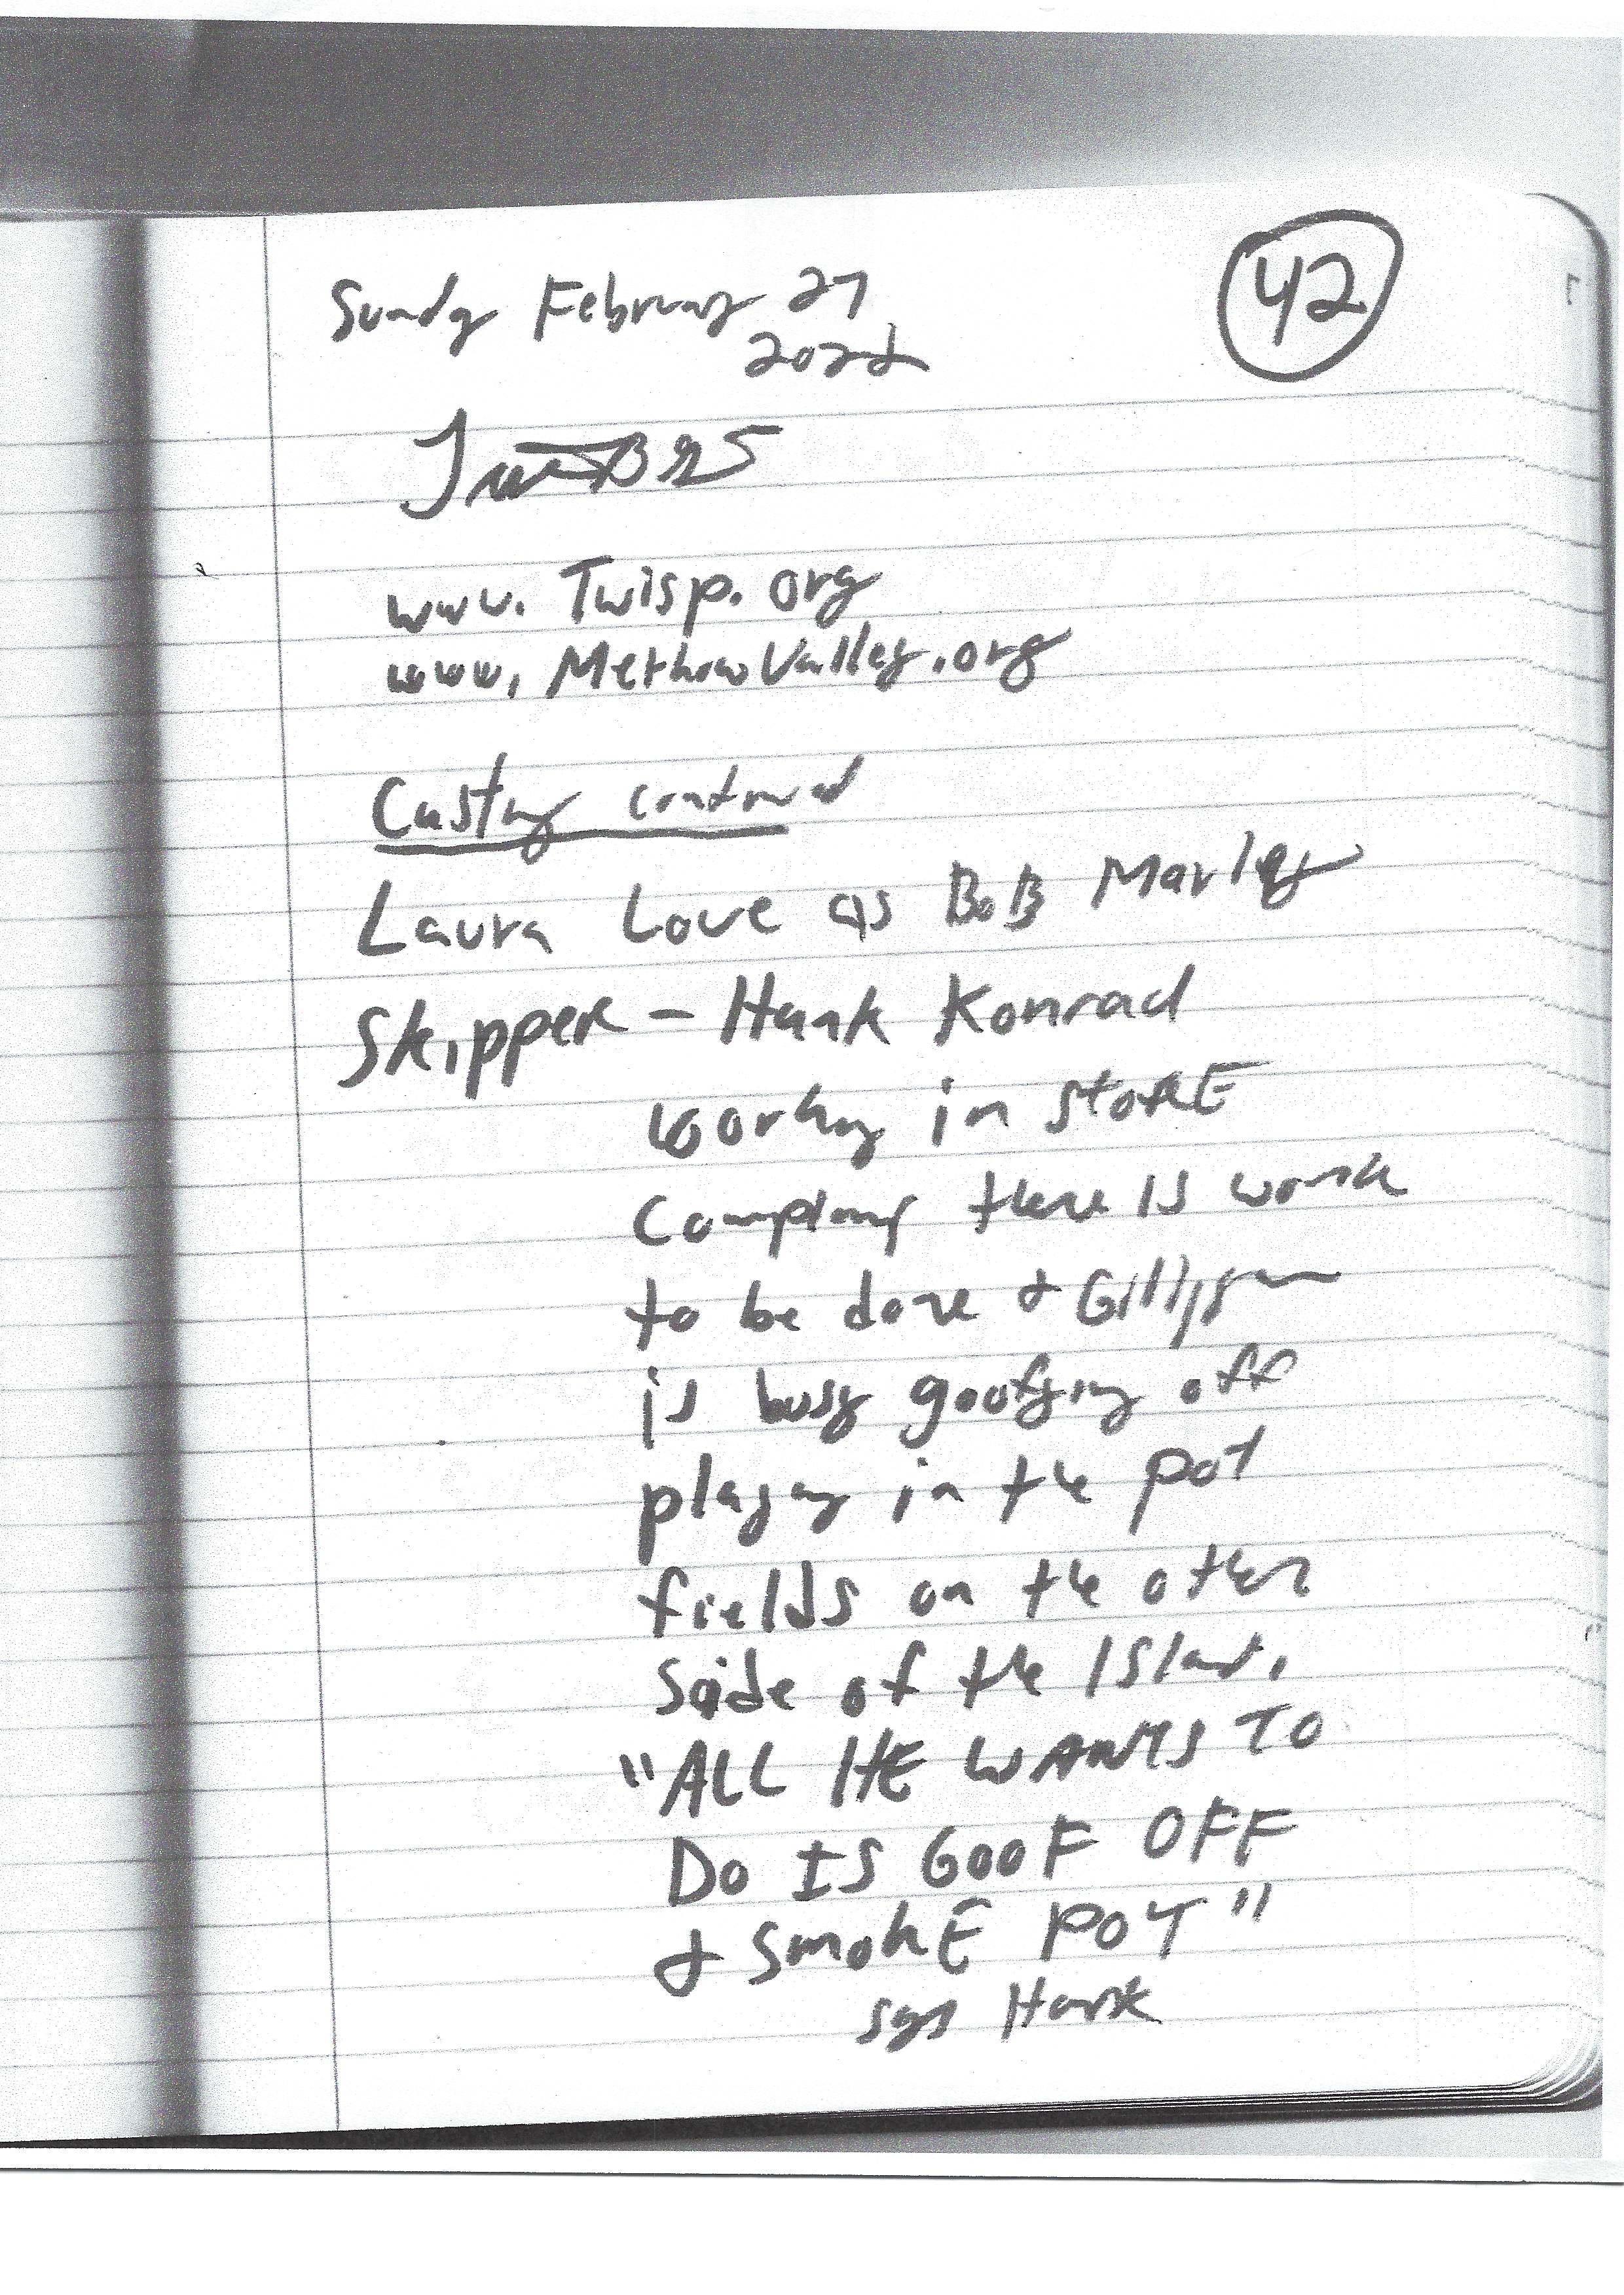 Sunday February 27
2022
42
www. Twisp. org
www. MethowValley.org
Casting continued
Laura Love as BoB Marley
Skipper - Hank Konrad
working in storE
Complaining there is work
to be done & Gilligan
is busy goofying off
playing in the pot
fields on the other
Side of the Island.
"ALL HE WANTS TO
DO IS GOOF OFF
& SmokE POT"
says Hank